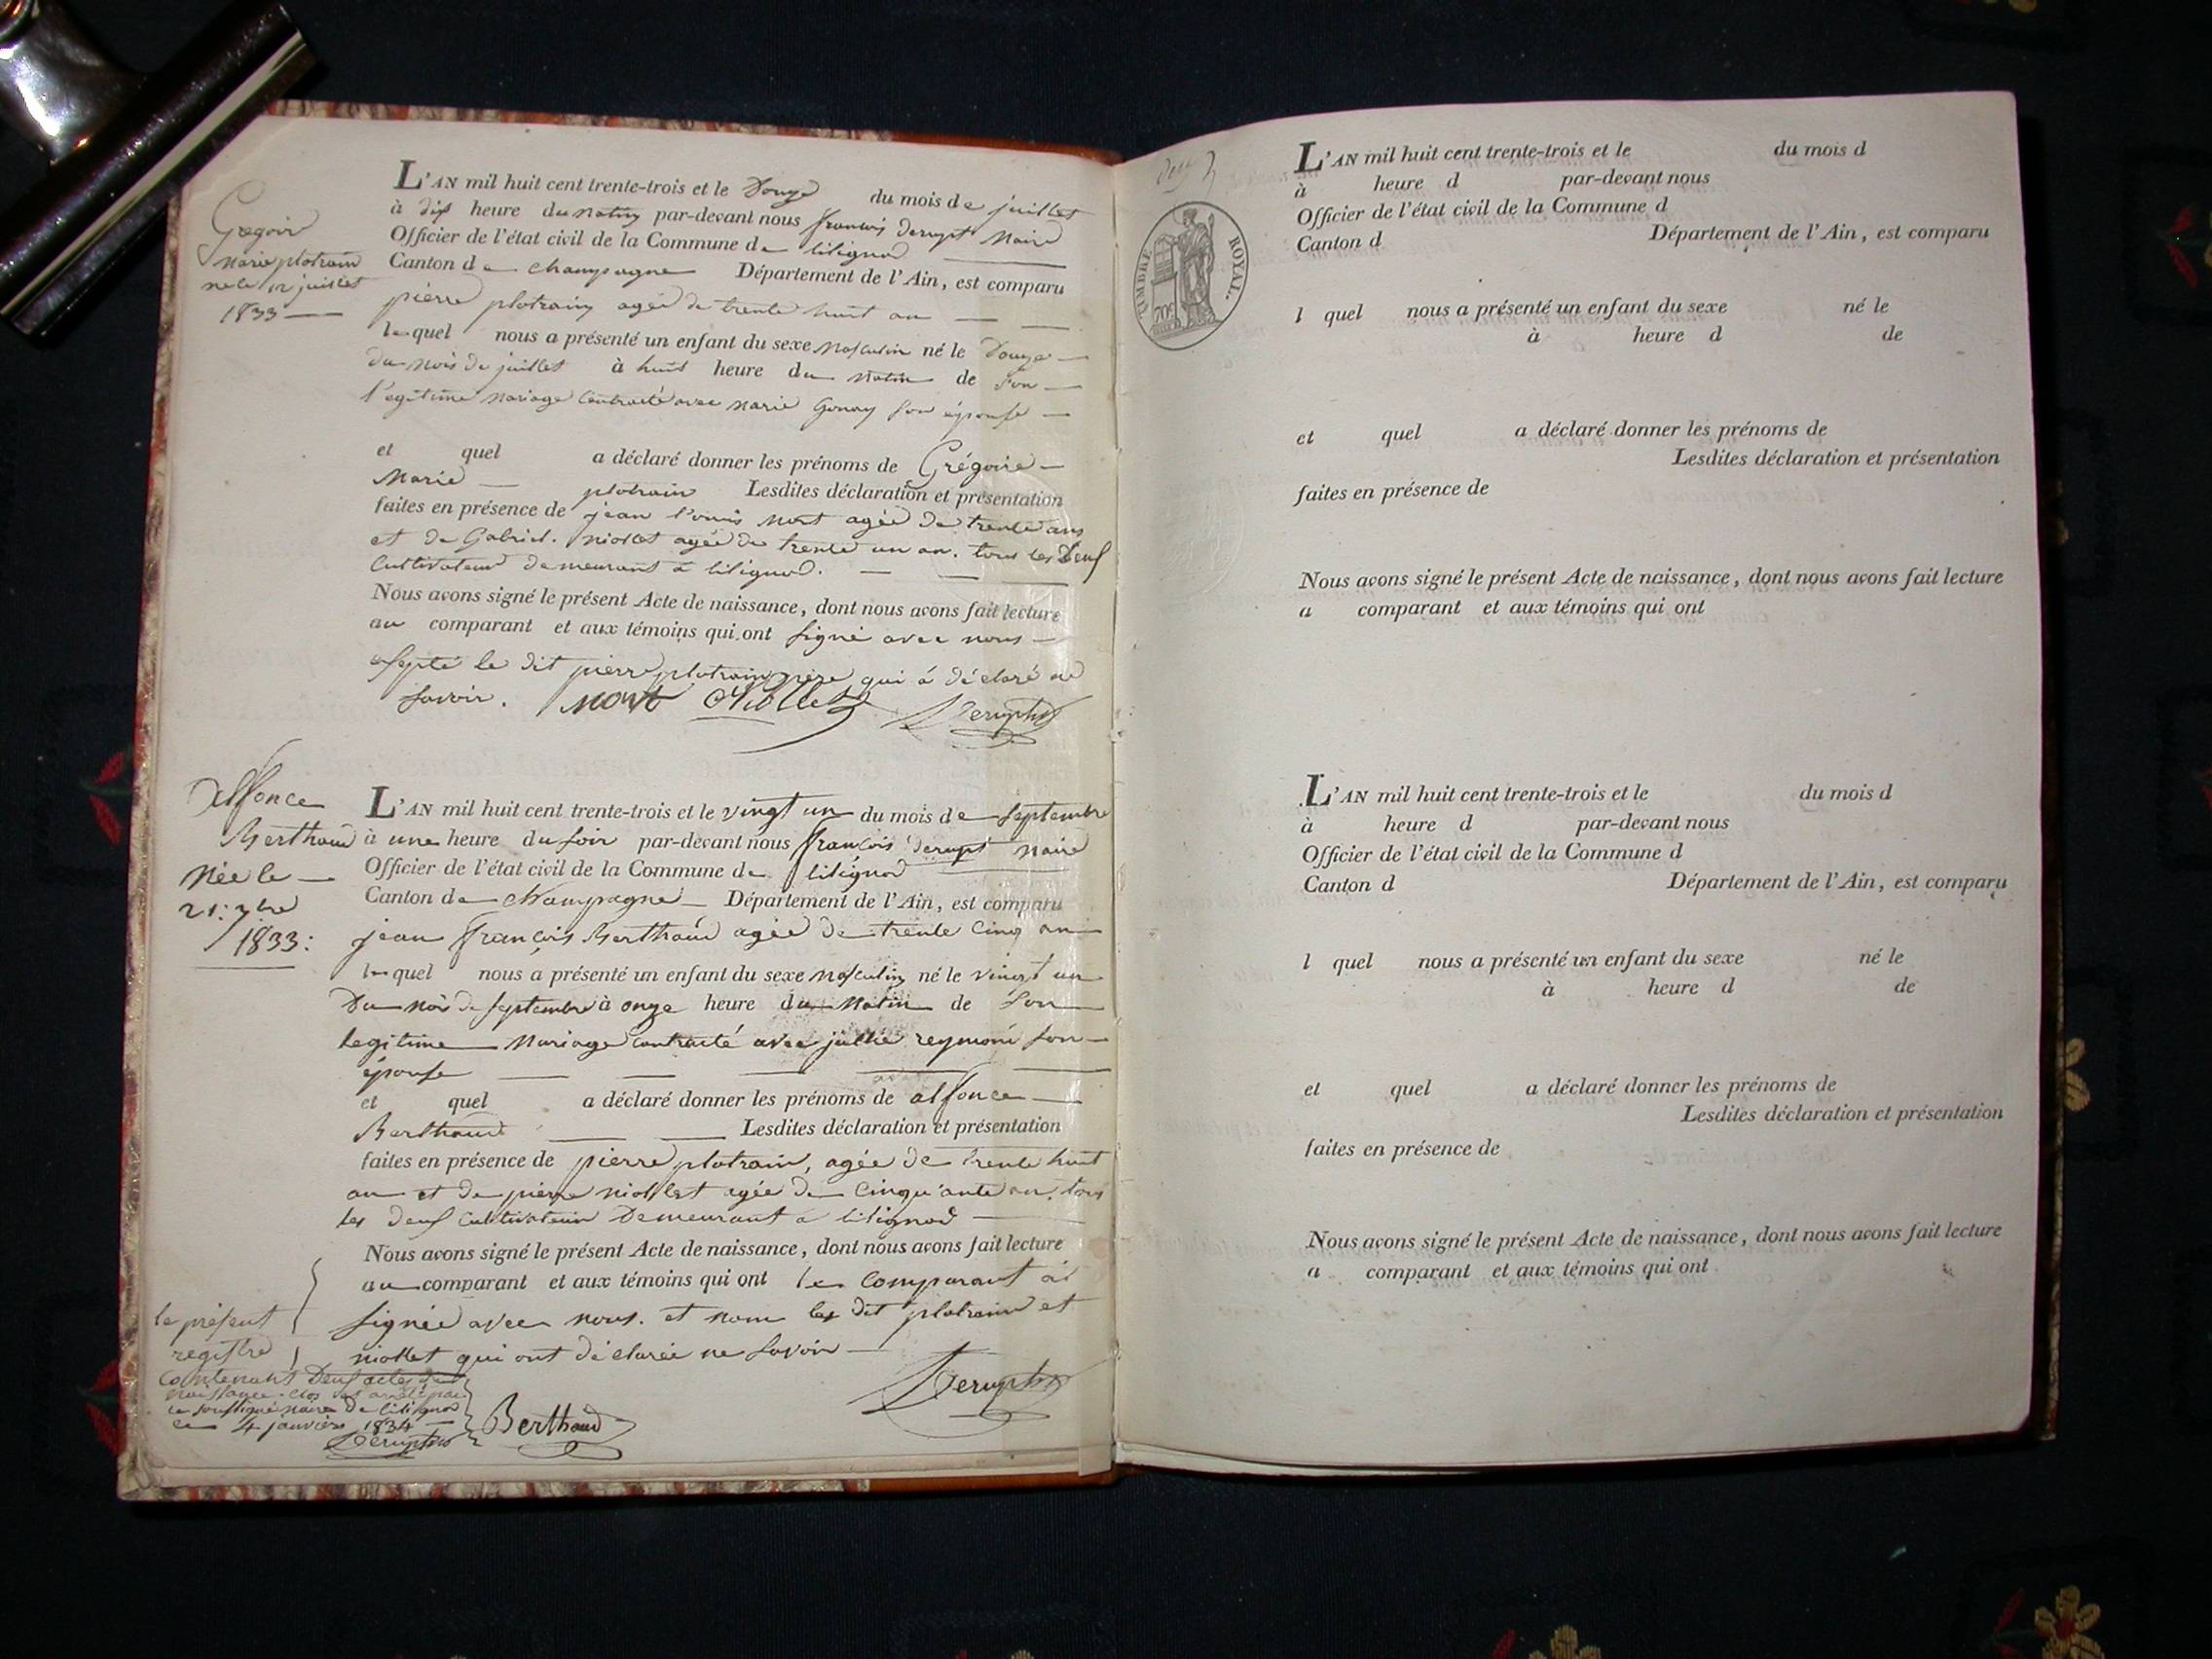 Grégoire
marie plotrain
né le 12 juillet
1833
L'AN mil huit cent trente-trois et le Douze du mois de juillet
à dix heure du matin par-devant nous francois Derupt Maire
Officier de l'état civil de la Commune de lilignod
Canton de champagne Département de l'Ain, est comparu
pierre plotrain agée de trente huit an
lequel nous a présenté un enfant du sexe masculin né le Douze
du mois de juillet à huit heure du matin de son
légitime mariage contracté avec marie Gonay son épouse
et quel a déclaré donner les prénoms de Grégoire
Marie plotrain Lesdites déclaration et présentation
faites en présence de jean l'ouis Mort agée de trente ans
et de Gabriel niollet agée de trente un an. tous les Deux
Cultivateur demeurant a lilignod.
Nous avons signé le présent Acte de naissance, dont nous avons fait lecture
au comparant et aux témoins qui ont signé avec nous
le dit pierre plotrain père qui á déclaré ne
savoir. Mort Niollet Derupt
Alfonce
Berthaud
Née le
21: 7bre
1833:
L'AN mil huit cent trente-trois et le vingt un du mois de septembre
à une heure du soir par-devant nous françois derupt maire
Officier de l'état civil de la Commune de lilignod
Canton de champagne Département de l'Ain, est comparu
jean françois Berthaud agée de trente cinq an
lequel nous a présenté un enfant du sexe masculin né le vingt un
Du mois de septembre à onze heure du Matin de son
legitime Mariage contracté avec jullie reymond son
épouse
et quel a déclaré donner les prénoms de alfonce
Berthaud Lesdites déclaration et présentation
faites en présence de pierre plotrain, agée de trente huit
an et de pierre niollet agée de cinqu'ante an. tous
les deux Cultivateur Demeurant a lilignod
Nous avons signé le présent Acte de naissance, dont nous avons fait lecture
au comparant et aux témoins qui ont le comparant a
signée avec nous. et nom les dit plotrain et
niollet qui ont déclarée ne savoir
Derupt
le présent
registre
contenant Deux actes de
naissance clos et arrêté par
le soussigné maire de lilignod
ce 4 janvier 1834
Derupt
Berthaud
TIMBRE ROYAL.
70c
L'AN mil huit cent trente-trois et le du mois d
à heure d par-devant nous
Officier de l'état civil de la Commune d
Canton d Département de l'Ain, est comparu
l quel nous a présenté un enfant du sexe né le
à heure d de
et quel a déclaré donner les prénoms de
Lesdites déclaration et présentation
faites en présence de
Nous avons signé le présent Acte de naissance, dont nous avons fait lecture
a comparant et aux témoins qui ont
L'AN mil huit cent trente-trois et le du mois d
à heure d par-devant nous
Officier de l'état civil de la Commune d
Canton d Département de l'Ain, est comparu
l quel nous a présenté un enfant du sexe né le
à heure d de
et quel a déclaré donner les prénoms de
Lesdites déclaration et présentation
faites en présence de
Nous avons signé le présent Acte de naissance, dont nous avons fait lecture
a comparant et aux témoins qui ont